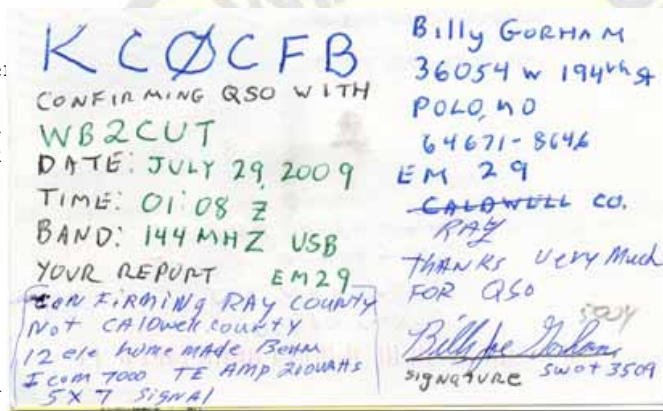 KCØCFB
CONFIRMING QSO WITH
WB2CUT
DATE: JULY 29, 2009
TIME: 01:08 Z
BAND: 144 MHZ USB
YOUR REPORT EM29
CONFIRMING RAY COUNTY
Not CALDwell county
12 ele homemade Beam
Icom 7000 TE Amp 210watts
5X7 SIGNAL
Billy GORHAM
36054 W 194th St
POLO, MO
64671-8646
EM 29
CALDWELL CO.
RAY
THANKS Very Much
FOR QSO
Billy Joe Gorham
SIGNATURE SWOT 3509